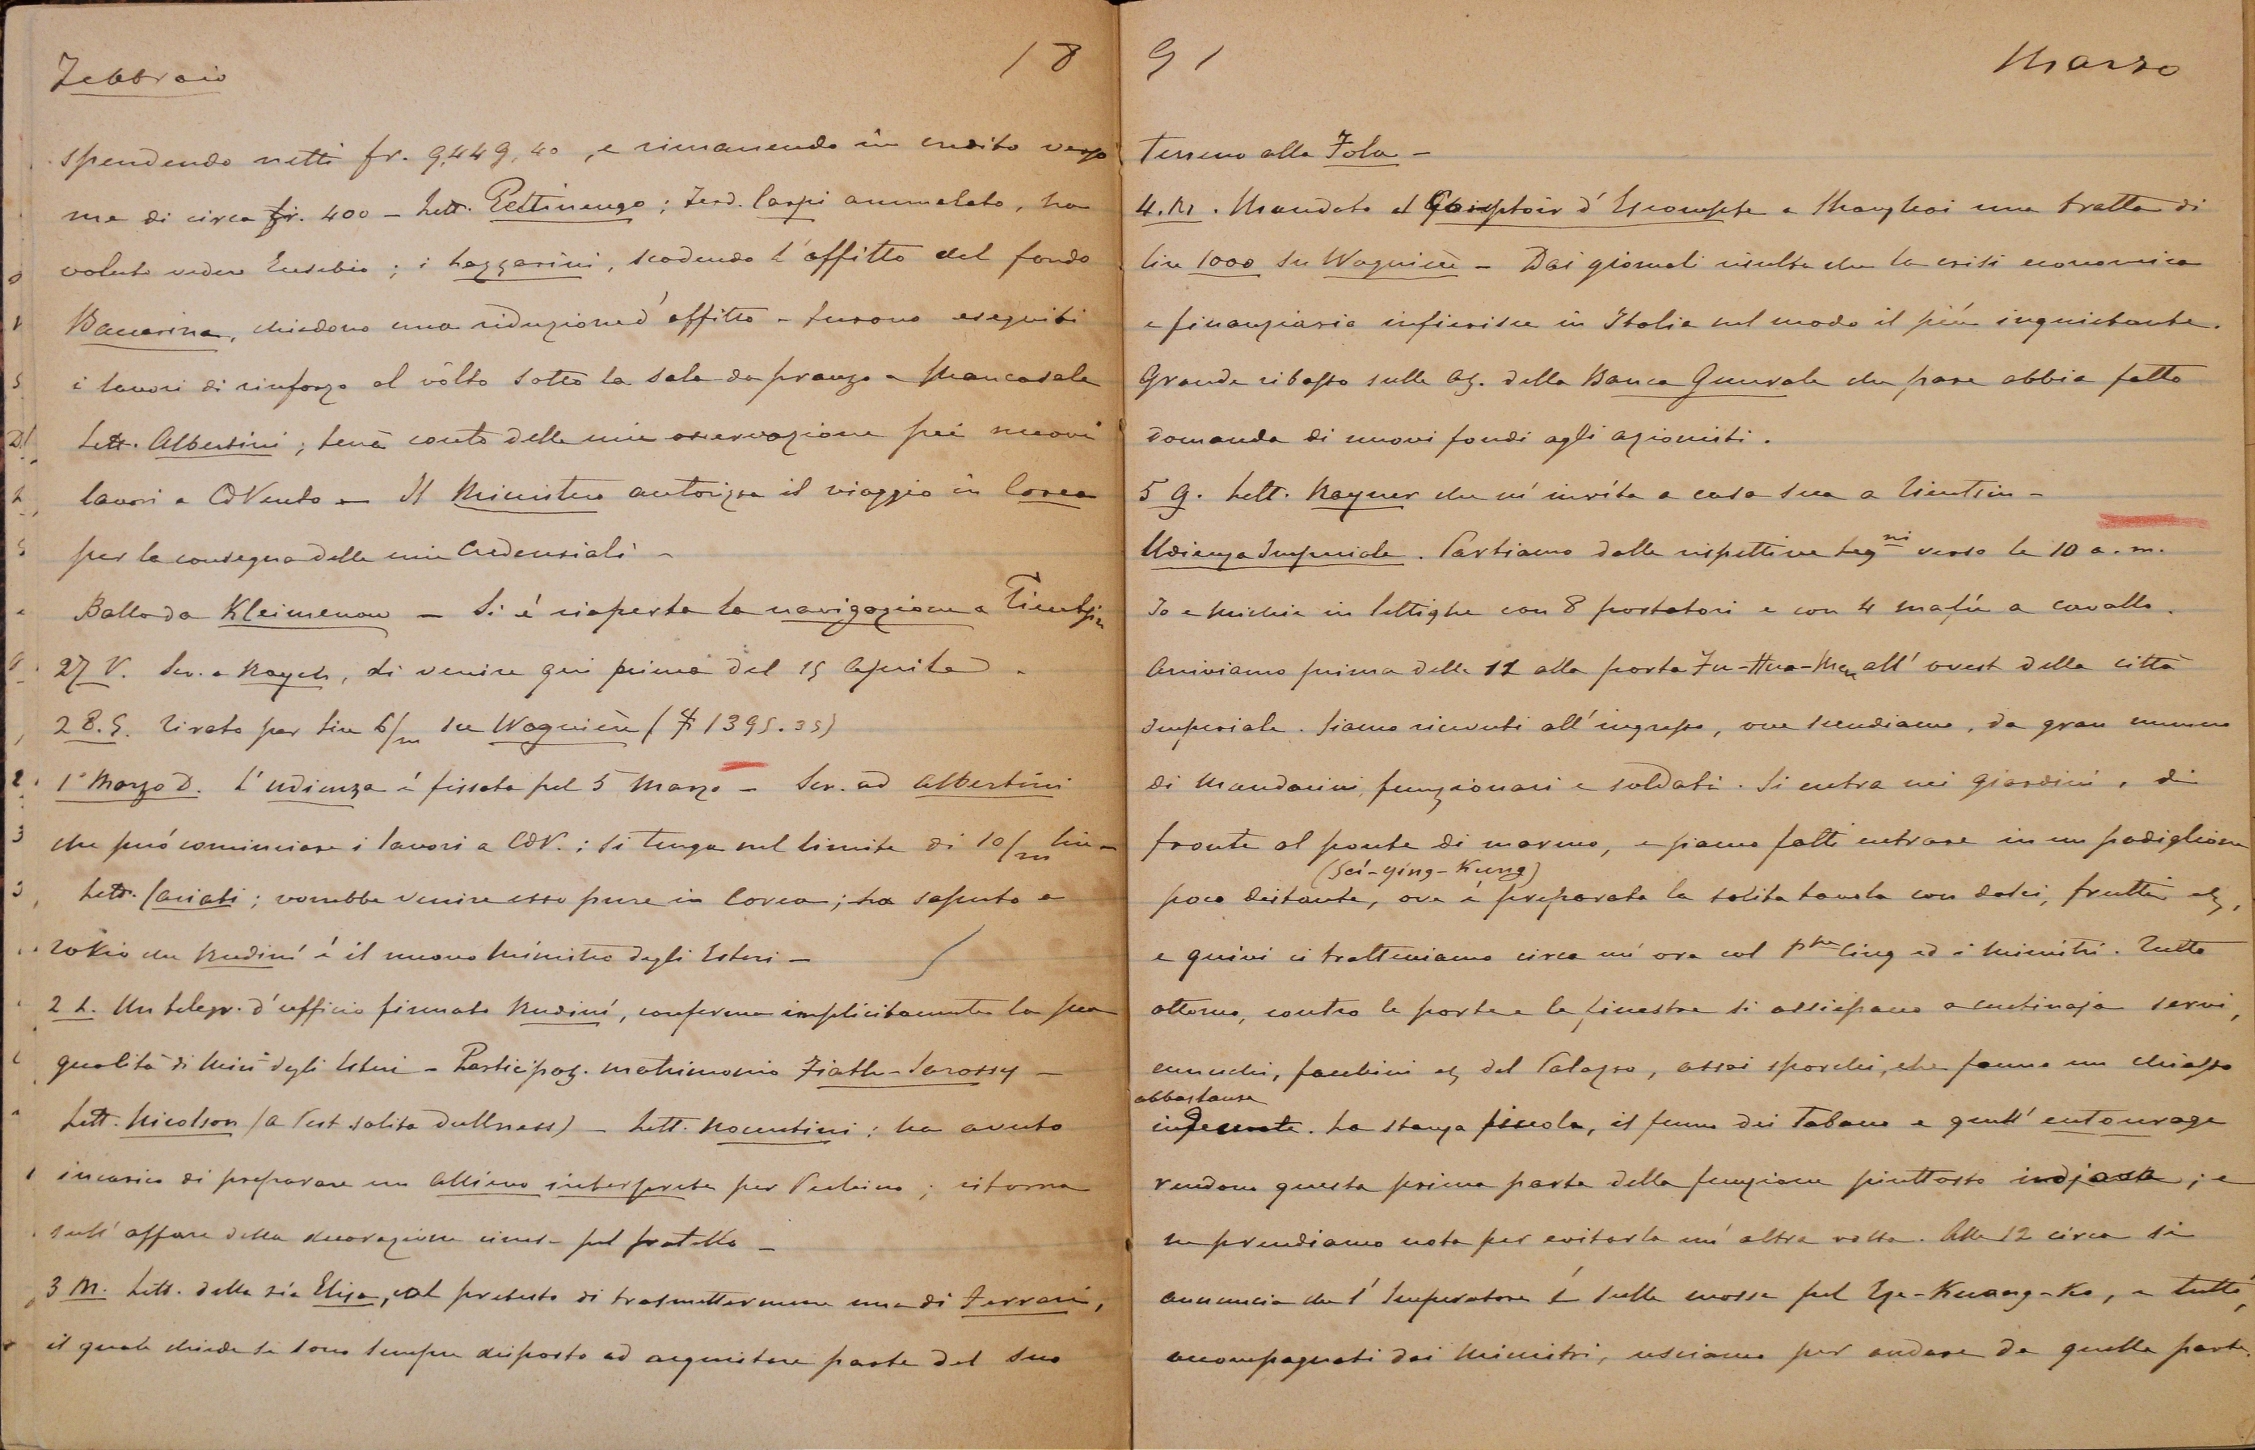 Febbraio 18
spendendo netti fr. 9,449,40, e rimanendo in credito verso
me di circa fr. 400 – Lett. Pettinengo; Ferd. Carpi ammalato, ha
voluto vedere Eusebio; i Lazzarini, scadendo l'affitto del fondo
Baccarina, chiedono una riduzione d'affitto – Furono eseguiti
i lavori di rinforzo al vôlto sotto la sala da pranzo a Mancasale
Lett. Albertini; terrà conto delle mie osservazioni pei nuovi
lavori a CdVento – Il Ministero autorizza il viaggio in Corea
per la consegna delle mie Credenziali –
Ballo da Kleimenow – Si è riaperta la navigazione a Tientsin
27 V. Scr. a , di venire qui prima del 15 Aprile
28. S. Tirato per Lire 6/m su Wagnière ($ 1395.35)
1° Marzo D. L'udienza è fissata pel 5 Marzo – Scr. ad Albertini
che può cominciare i lavori a CdV.; si tenga nel limite di 10/m lire –
Lett. Cariati; vorrebbe venire esso pure in Corea; ha saputo a
Tokio che Rudinì è il nuovo Ministro degli Esteri –
2 L. Un telegr. d'ufficio firmato Rudinì, conferma implicitamente la sua
qualità di Min° degli Esteri – Partecipaz. matrimonio –
Lett. Nicolson (a Pest solita dullness) – Lett. Nocentini: ha avuto
incarico di preparare un allievo interprete per Pechino; ritorna
sull'affare della decorazione cinese pel fratello –
3 M. Lett. della zia Elisa, col pretesto di trasmettermene una di Ferrari,
il quale chiede se sono sempre disposto ad acquistare parte del suo
91 Marzo
terreno alla Fola –
4. M. Mandato al Comptoir d'Escompte a Shanghai una tratta di
lire 1000 su Wagnière – Dai giornali risulta che la crisi economica
e finanziaria infierisce in Italia nel modo il più inquietante.
Grande ribasso sulle Az. della Banca Generale che pare abbia fatto
domanda di nuovi fondi agli azionisti.
5 G. Lett. che m'invita a casa sua a Tientsin –
Udienza Imperiale. Partiamo dalle rispettive Leg ni verso le 10 a.m.
Io e Michie in lettighe con 8 portatori e con 4 mafù a cavallo.
Arriviamo prima delle 11 alla porta Fu-Hua-Men all'ovest della città
Imperiale. Siamo ricevuti all'ingresso, ove scendiamo, da gran numero
di Mandarini, funzionari e soldati. Si entra nei giardini, di
fronte al ponte di marmo, e siamo fatti entrare in un padiglione
(Sei-ying-Kung)
poco distante, ove è preparata la solita tavola con dolci, frutti ez,
e quivi ci tratteniamo circa un'ora col Pcpe Cing ed i Ministri. Tutto
attorno, contro le porte e le finestre si assiepano a centinaja servi,
eunuchi, facchini ez del Palazzo, assai sporchi, che fanno un chiasso
abbastanza
indecente. La stanza piccola, il fumo dei tabacco e quell'entourage
rendono questa prima parte della funzione piuttosto ; e
ne prendiamo nota per evitarla un'altra volta. Alle 12 circa si
annuncia che l'Imperatore è sulle mosse pel Tze-Kuang-Ko, e tutti,
accompagnati dai Ministri, usciamo per andare da quella parte.